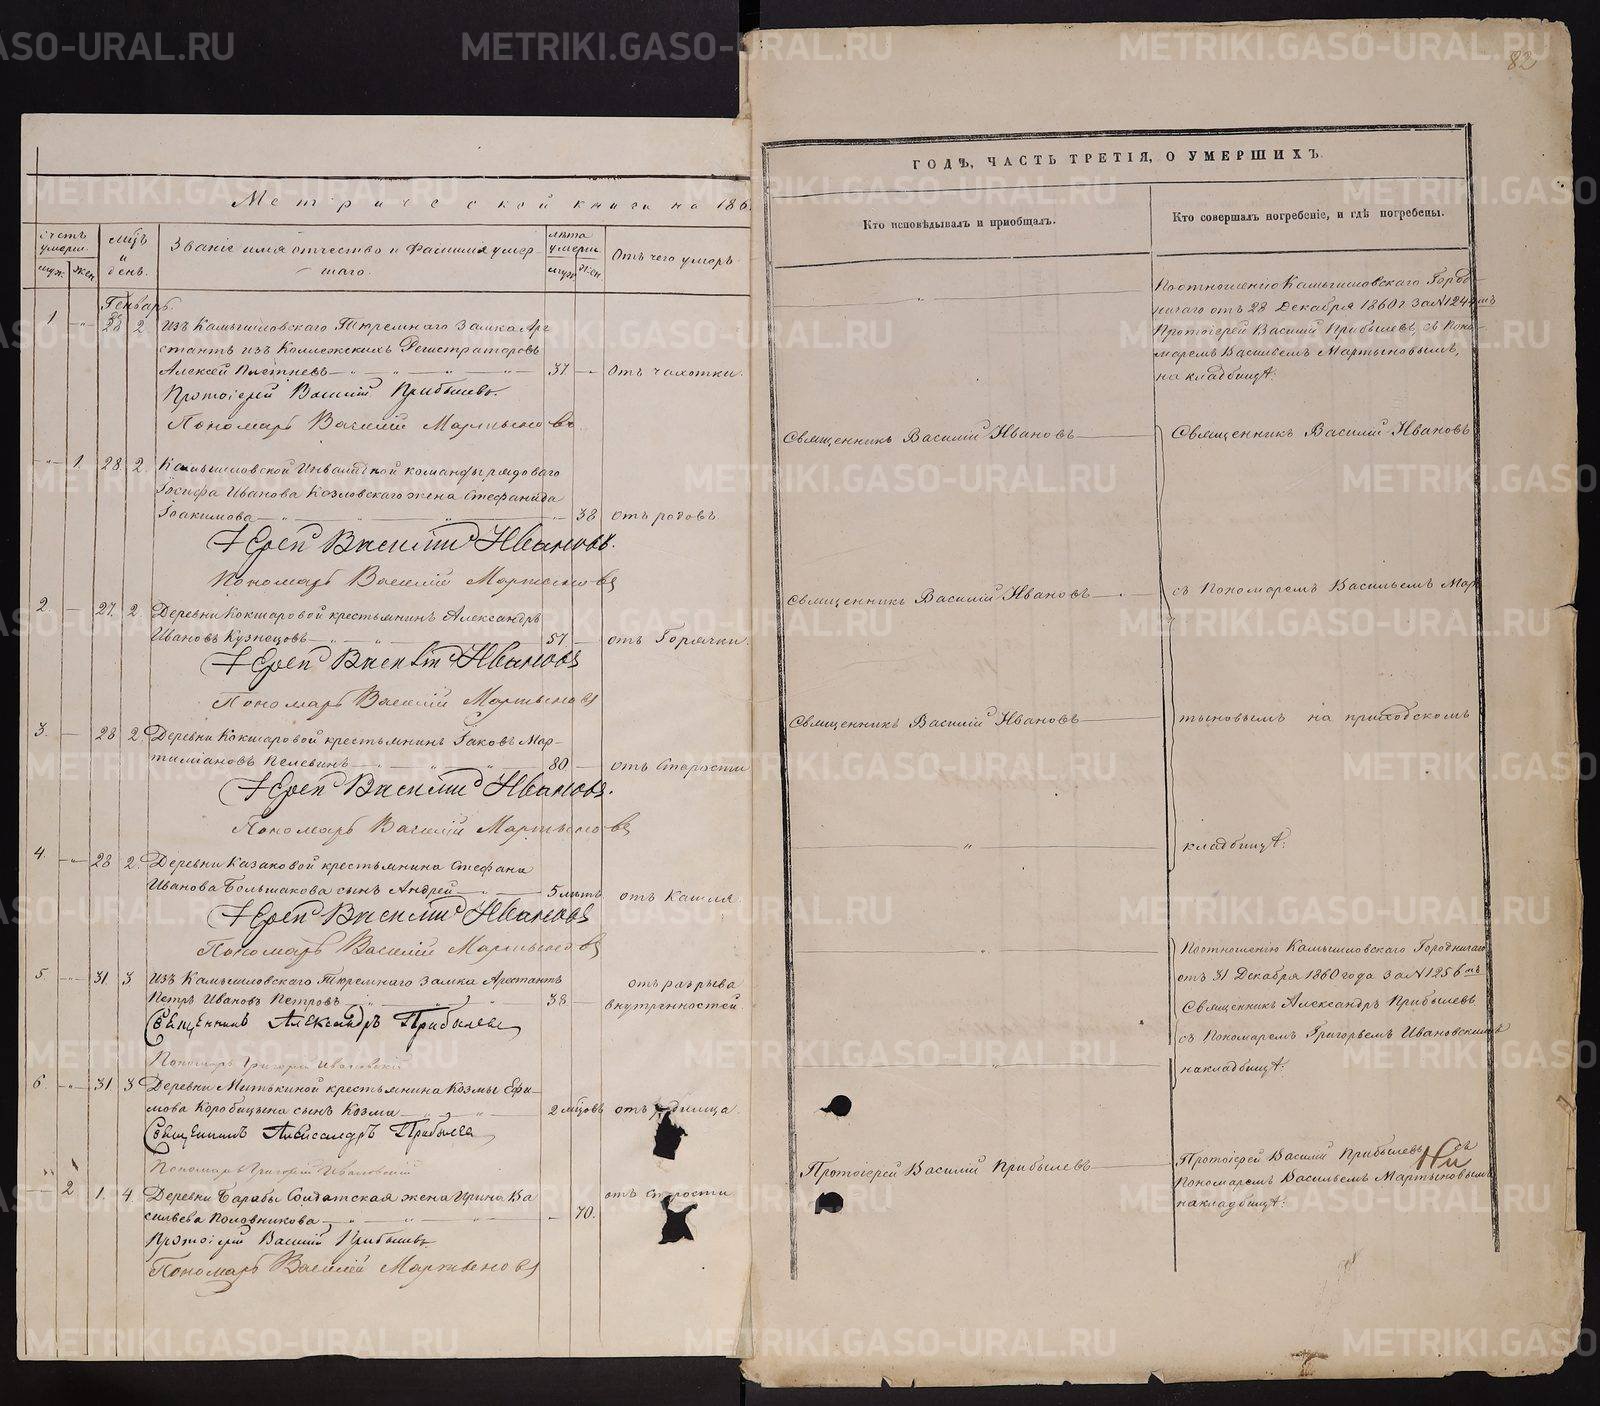 82
Метрической книги на 186
ГОДѢ, ЧАСТЬ ТРЕТІЯ, О УМЕРШИХЪ.
счетъ умерш.
муж. жен.
мцъ и день.
Званіе имя отчество и Фамилія умер-
шаго.
лѣта умерш.
муж. жен.
Отъ чего умеръ
Кто исповѣдывалъ и приобщалъ.
Кто совершалъ погребеніе, и гдѣ погребены.
Генварь.
1 " 28 2 Изъ Камышловскаго Тюремнаго Замка Аре
стантъ изъ Коллежскихъ Регистраторовъ
Алексей Плетневъ 37 Отъ чахотки.
Протоіерей Василій Прибылевъ.
Пономарь Василій Мартыновъ
" 1 28 2 Камышловской Инвалидной команды рядоваго
Іосифа Иванова Козловскаго жена Стефанида
Іоакимова 38 отъ родовъ.
Іерей Василій Ивановъ.
Пономарь Василій Мартыновъ
2. 27 2. Деревни Кокшаровой крестьянинъ Александръ
Ивановъ Кузнецовъ 57 отъ Горячки.
Іерей Василій Ивановъ
Пономарь Василій Мартыновъ
3. 28 2. Деревни Кокшаровой крестьянинъ Іаковъ Мар-
тиміановъ Пелевинъ 80 отъ Старости
Іерей Василій Ивановъ.
Пономарь Василій Мартыновъ
4. 28 2. Деревни Казаковой крестьянина Стефана
Иванова Большакова сынъ Андрей 5 лѣтъ отъ Кашля.
Іерей Василій Ивановъ
Пономарь Василій Мартыновъ
5. 31 3 Изъ Камышловскаго Тюремнаго Замка Арестантъ
Петръ Ивановъ Петровъ 38 отъ разрыва
внутренностей.
Священникъ Александръ Прибылевъ
Пономарь Григорій Ивановскій
6. 31 3 Деревни Митькиной крестьянина Козмы Ефи-
мова Коробицына сынъ Козма 2 мцовъ отъ
Священникъ Александръ Прибылевъ
Пономарь Григорій Ивановскій
2 1. 4. Деревни Барабы Солдатская жена Ирина Ва
сильева Половникова 70. отъ старости
Протоіерей Василій Прибылевъ
Пономарь Василій Мартыновъ
Священникъ Василій Ивановъ
Священникъ Василій Ивановъ
Священникъ Василій Ивановъ
Протоіерей Василій Прибылевъ
По отношенію Камышловскаго Город-
ничаго отъ 28 Декабря 1860 г за №
Протоіерей Василій Прибылевъ съ Поно-
маремъ Васильемъ Мартыновымъ,
на кладбищѣ.
Священникъ Василій Ивановъ
съ Пономаремъ Васильемъ Мар
тыновымъ на приходскомъ
кладбищѣ.
По отношенію Камышловскаго Городничаго
отъ 31 Декабря 1860 года за № 1256 мъ
Священникъ Александръ Прибылевъ
съ Пономаремъ Григорьемъ Ивановскимъ
на кладбищѣ.
Протоіерей Василій Прибылевъ съ
Пономаремъ Васильемъ Мартыновымъ
на кладбищѣ.
METRIKI.GASO-URAL.RU